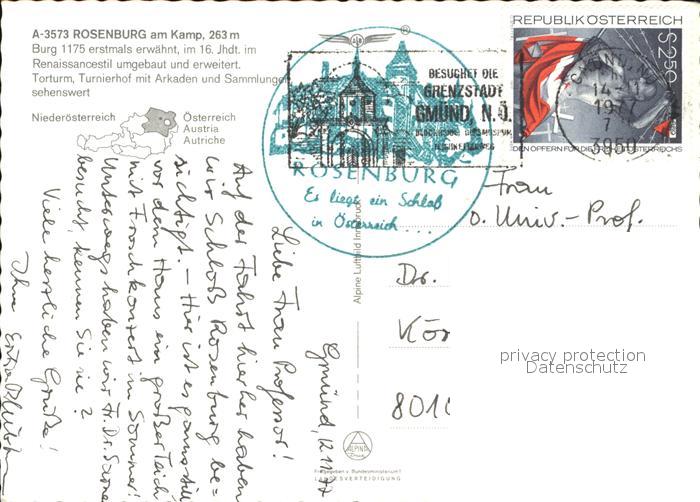 A-3573 ROSENBURG am Kamp, 263 m
Burg 1175 erstmals erwähnt, im 16. Jhdt. im
Renaissancestil umgebaut und erweitert.
Torturm, Turnierhof mit Arkaden und Sammlungen
sehenswert
Niederösterreich
Österreich
Austria
Autriche
BESUCHET DIE
GRENZSTADT
GMÜND, N.Ö.
ROSENBURG
Es liegt ein Schloß
in Österreich ...
REPUBLIK ÖSTERREICH
S 2.50
DEN OPFERN FÜR DIE ÖSTERREICHS
14-11
1977
7
3950
Frau
o. Univ.-Prof.
Dr.
Kör
801
privacy protection
Datenschutz
Alpine Luftbild Innsbruck
ALPINE
Freigegeben v. Bundesministerium f.
LANDESVERTEIDIGUNG
Gmünd, 12.11.77
Liebe Frau Professor!
Auf der Fahrt hierher haben
wir Schloß Rosenburg be=
sichtigt. – Hier ist es ganz still
vor dem Haus ein großer Teich
mit Froschkonzert im Sommer!
Unterwegs haben wir Fr. Dr.
besucht, kennen Sie sie?
Viele herzliche Grüße!
Ihre